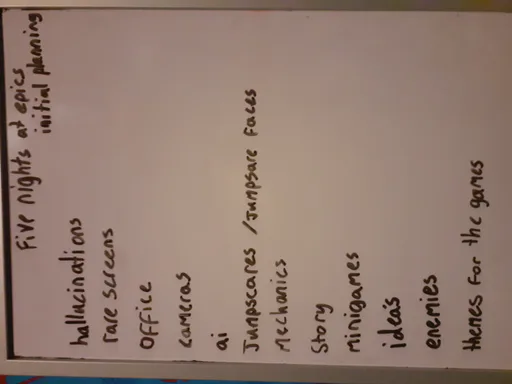 Five nights at epics
initial planning
hallucinations
rare screens
OFFice
cameras
ai
Jumpscares / Jumpsare Faces
Mechanics
Story
minigames
ideas
enemies
themes For the games